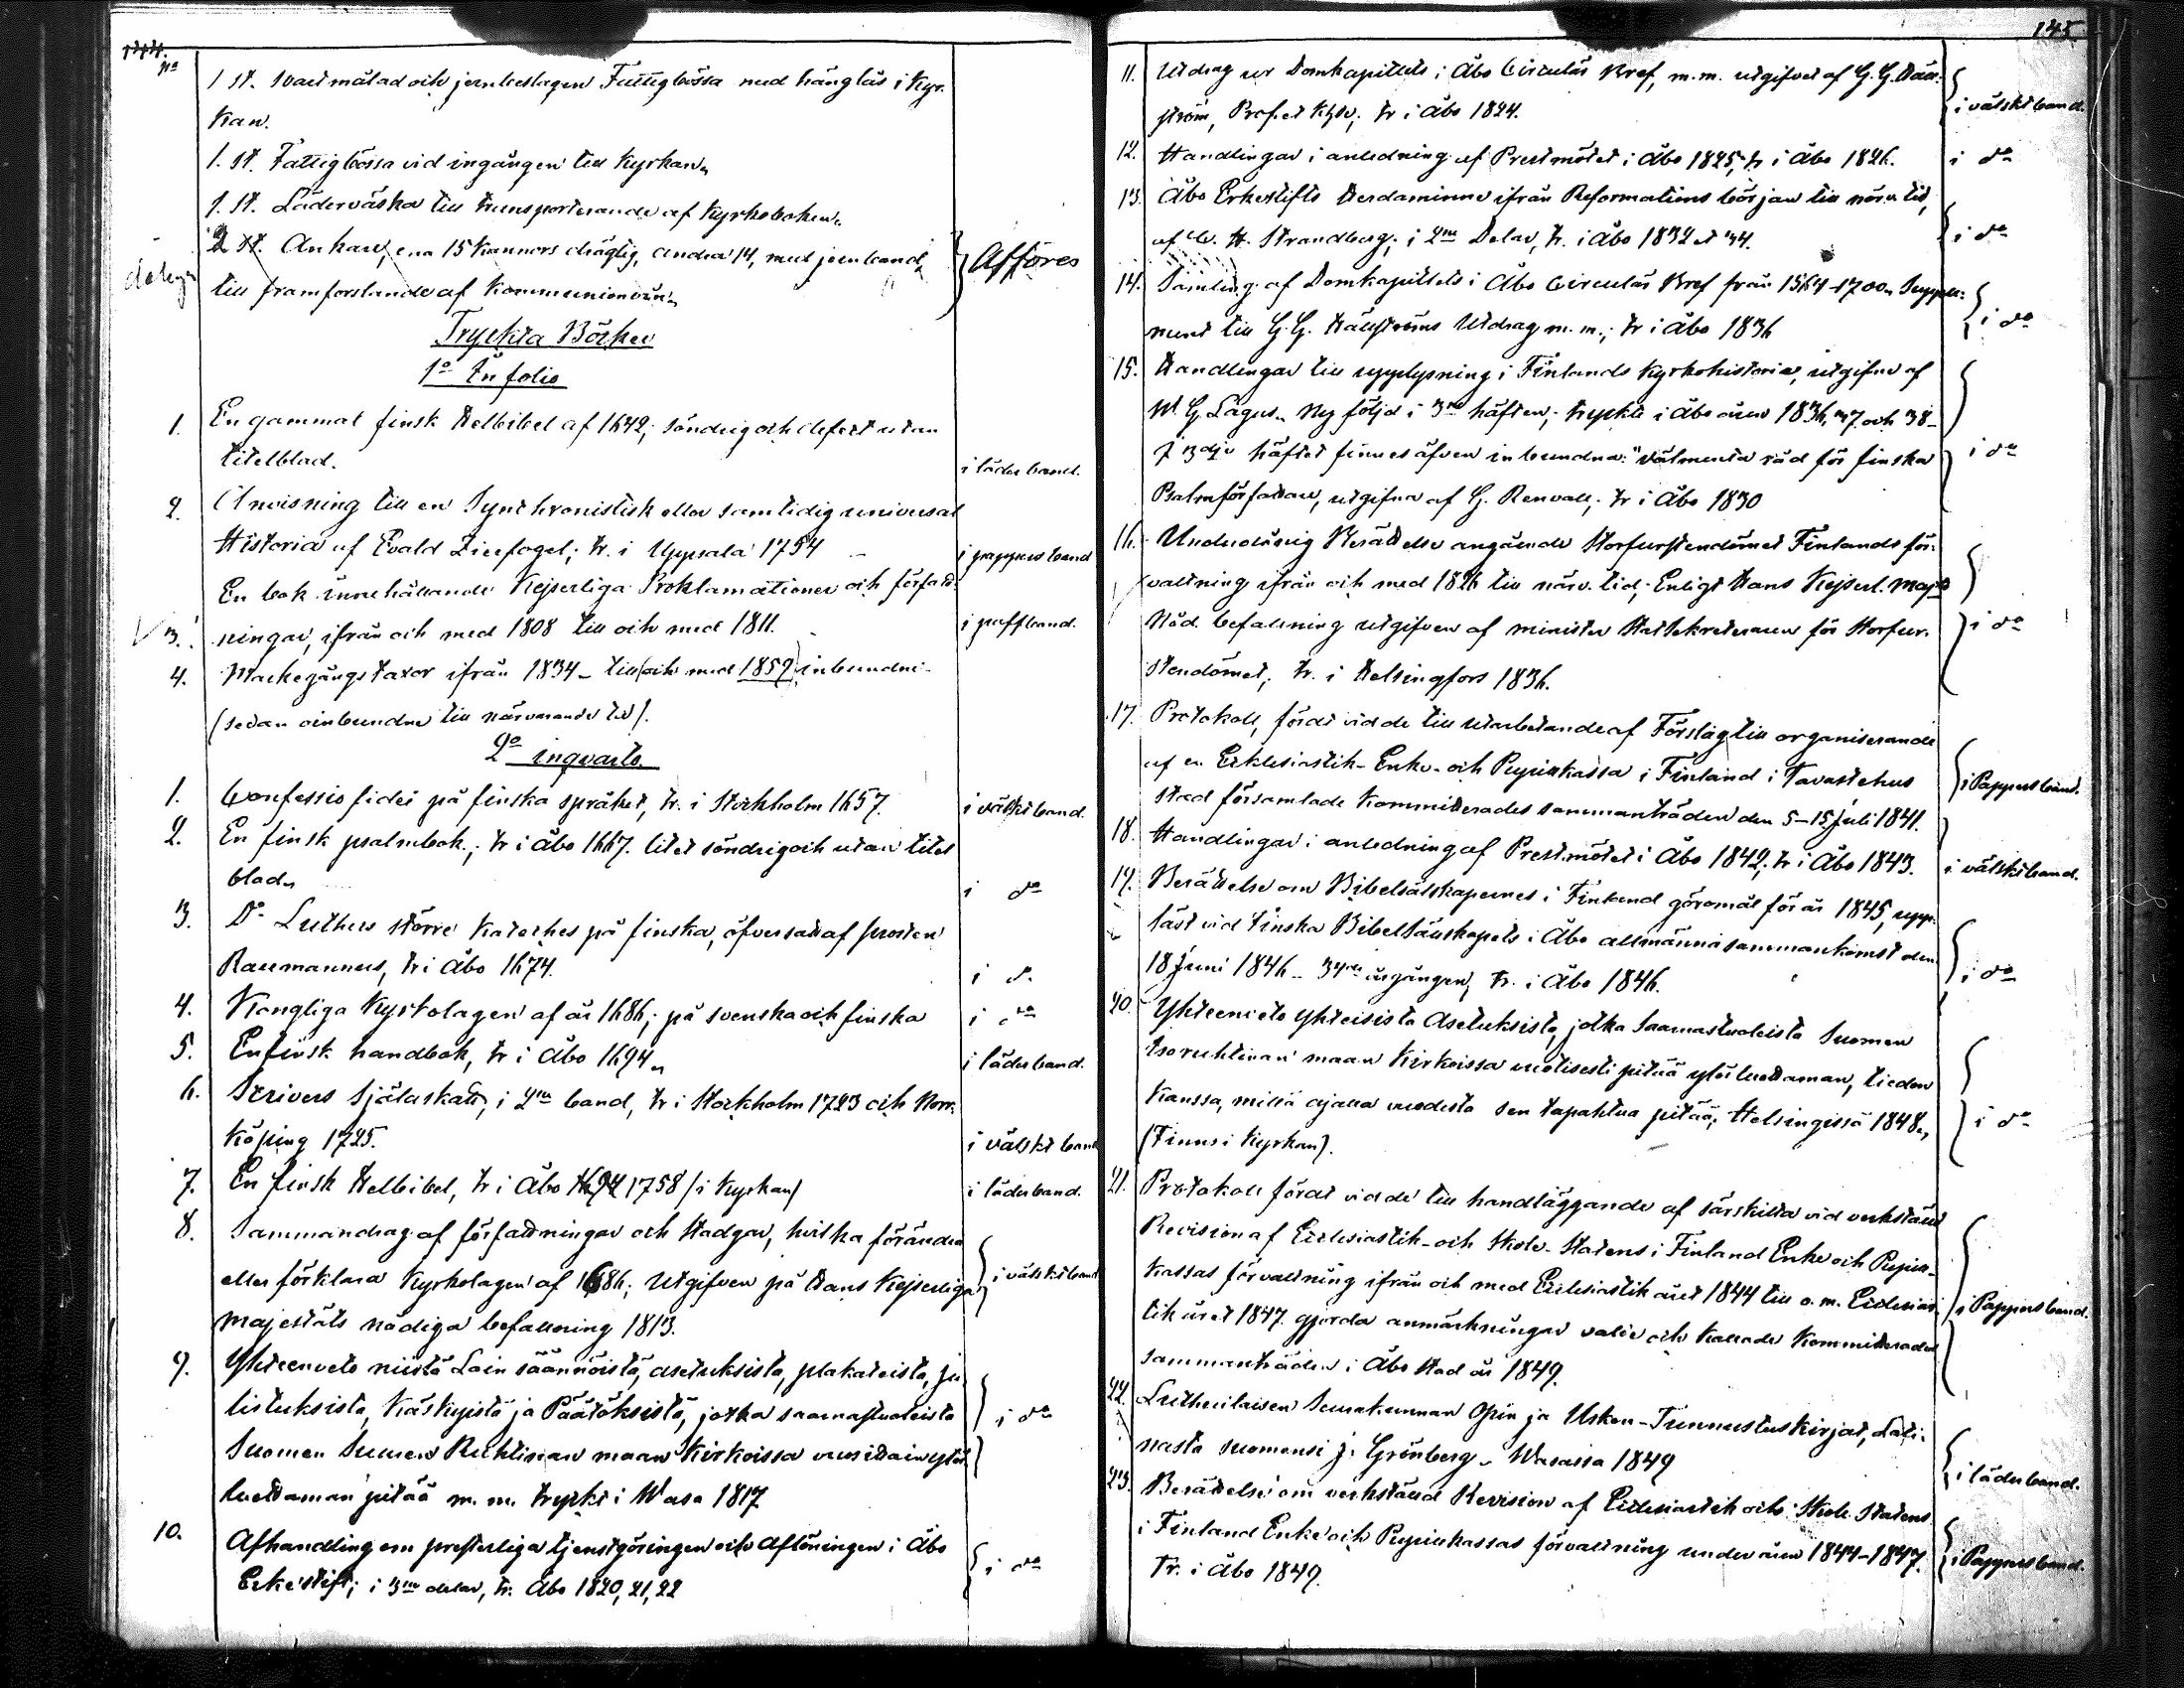 144.
No
1 st. svartmålad och jernbeslagen Fattigbössa med hänglås i Kyr-
kan.
1. st. Fattigbössa vid ingången till Kyrkan.
1. st. Läderväska till transporterande af Kyrkoboken.
2 st. Ankare, ena 15 kannors drägtig, andra 14, med jernband
till framforslande af Kommunionvin.
Afföres
Tryckta Böcker
1o In folio
1. En gammal finsk Helbibel af 1642; söndrig och defect utan
titelblad. i läderband.
2. Anvisning till en Synchronistisk eller samtidig universal
Historia af Evald Ziervogel; tr. i Uppsala 1754 i pappersband
En bok innehållande Kejserliga Proklamationer och författ-
3. ningar, ifrån och med 1808 till och med 1811. i paffband.
4. Markegångstaxor ifrån 1834 - till (och med 1859) inbundne
(sedan oinbundne till närvarande tid).
2o inqvarto.
1. Confessio fidei på finska språket, tr. i Stockholm 1657. i välsktband.
2. En finsk psalmbok; tr i Åbo 1667. litet söndrig och utan titel
blad. i do
3. Dr Luthers större Kateches på finska, öfversatt af prosten
Raumannus, tr i Åbo 1674. i do
4. Kongliga Kyrkolagen af år 1686; på svenska och finska i do
5. En finsk handbok, tr i Åbo 1694. i läderband.
6. Scrivers Själaskatt, i 2ne band, tr i Stockholm 1723 och Norr-
köping 1725. i välskt band
7. En finsk Helbibel, tr i Åbo 1694 1758 (i Kyrkan) i läderband.
8. Sammandrag af författningar och stadgar, hvilka förändra
eller förklara Kyrkolagen af 1686; Utgifven på Hans Kejserliga i välsktband
Majestäts nådiga befallning 1813.
9. Yhteenveto niistä Lain säännöistä, asetuksista, plakateista, ju-
listuksista, Käskyistä ja Päätöksistä, jotka saarnastuoleista i do
Suomen Suuren Ruhtinan maan Kirkoissa vuosittain ylös
luettaman pitää m. m. tryckt i Wasa 1817
10. Afhandling om presterliga tjenstgöringen och aflöningen i Åbo
Erkestift; i 3ne delar, tr. Åbo 1820, 21, 22 i do
145.
11. Utdrag ur Domkapitlets i Åbo Circulär Bref, m.m. utgifvet af G. G. Häll-
ström, Prof. et Khde; tr i Åbo 1824. i välskt band.
12. Handlingar i anledning af Prestmötet i Åbo 1825; tr i Åbo 1826. i do
13. Åbo Erkestifts Herdaminne ifrån Reformations början till närv. tid,
af C. H. Strandberg; i 2ne Delar, tr. i Åbo 1832 et 34. i do
14. Samling af Domkapitlets i Åbo Circulär Bref från 1564-1700. Supple-
ment till G. G. Hällströms Utdrag m. m.; tr i Åbo 1836 i do
15. Handlingar till upplysning i Finlands Kyrkohistoria, utgifne af
W. G. Lagus. Ny följd i 3ne häften; tryckte i Åbo åren 1836, 37 och 38 -
I 3dje häftet finnes äfven inbundna: "välmenta råd för finska i do
Psalmförfattare, utgifna af G. Renvall; tr i Åbo 1830
16. Underdånig Berättelse angående Storfurstendömet Finlands för-
valtning ifrån och med 1826 till närv. tid; Enligt Hans Kejserl. Majts
Nåd. befallning utgifven af minister Statssekreteraren för Storfur- i do
stendömet, tr. i Helsingfors 1836.
17. Protokoll, fördt vid de till utarbetande af Förslag till organiserande
af en Ecklesiastik-Enke- och Pupillkassa i Finland i Tavastehus i Pappersband.
stad församlade Kommitterades sammanträden den 5-15 Juli 1841.
18. Handlingar i anledning af Prestmötet i Åbo 1842; tr i Åbo 1843. i välsktband.
19. Berättelse om Bibelsällskapernes i Finland göromål för år 1845, upp-
läst vid Finska Bibelsällskapets i Åbo allmänna sammankomst den
18 Juni 1846 - 34de årgången, tr. i Åbo 1846. i do
20. Yhteeniveto Yhteisista Asetuksista, jotka Saarnastuoleista Suomen
Isoruhtinan maan Kirkoissa vuotisesti pitää ylösluettaman, tiedon
Kanssa, millä ajalla vuodesta sen tapahtua pitää; Helsingissä 1848., i do
(Finns i Kyrkan).
21. Protokoll fördt vid de till handläggande af särskilta vid verkställd
Revision af Ecclesiastik- och Skole-Statens i Finland Enke och Pupill-
kassas förvaltning ifrån och med Ecclesiastik året 1844 till o. m. Ecclesias- i Pappersband.
tik året 1847. gjorda anmärkningar valde och kallade Kommitterades
sammanträden i Åbo stad år 1849.
22. Lutherilaisen Seurakunnan Opin ja Uskon-Tunnustuskirjat, Lati-
nasta suomensi J. Grönberg. Wasassa 1849 i läderband.
23. Berättelse om verkställd Revision af Ecclesiastik och Skole Statens
i Finland Enke och Pupillkassas förvaltning under åren 1844-1847. i Pappersband.
Tr. i Åbo 1849.